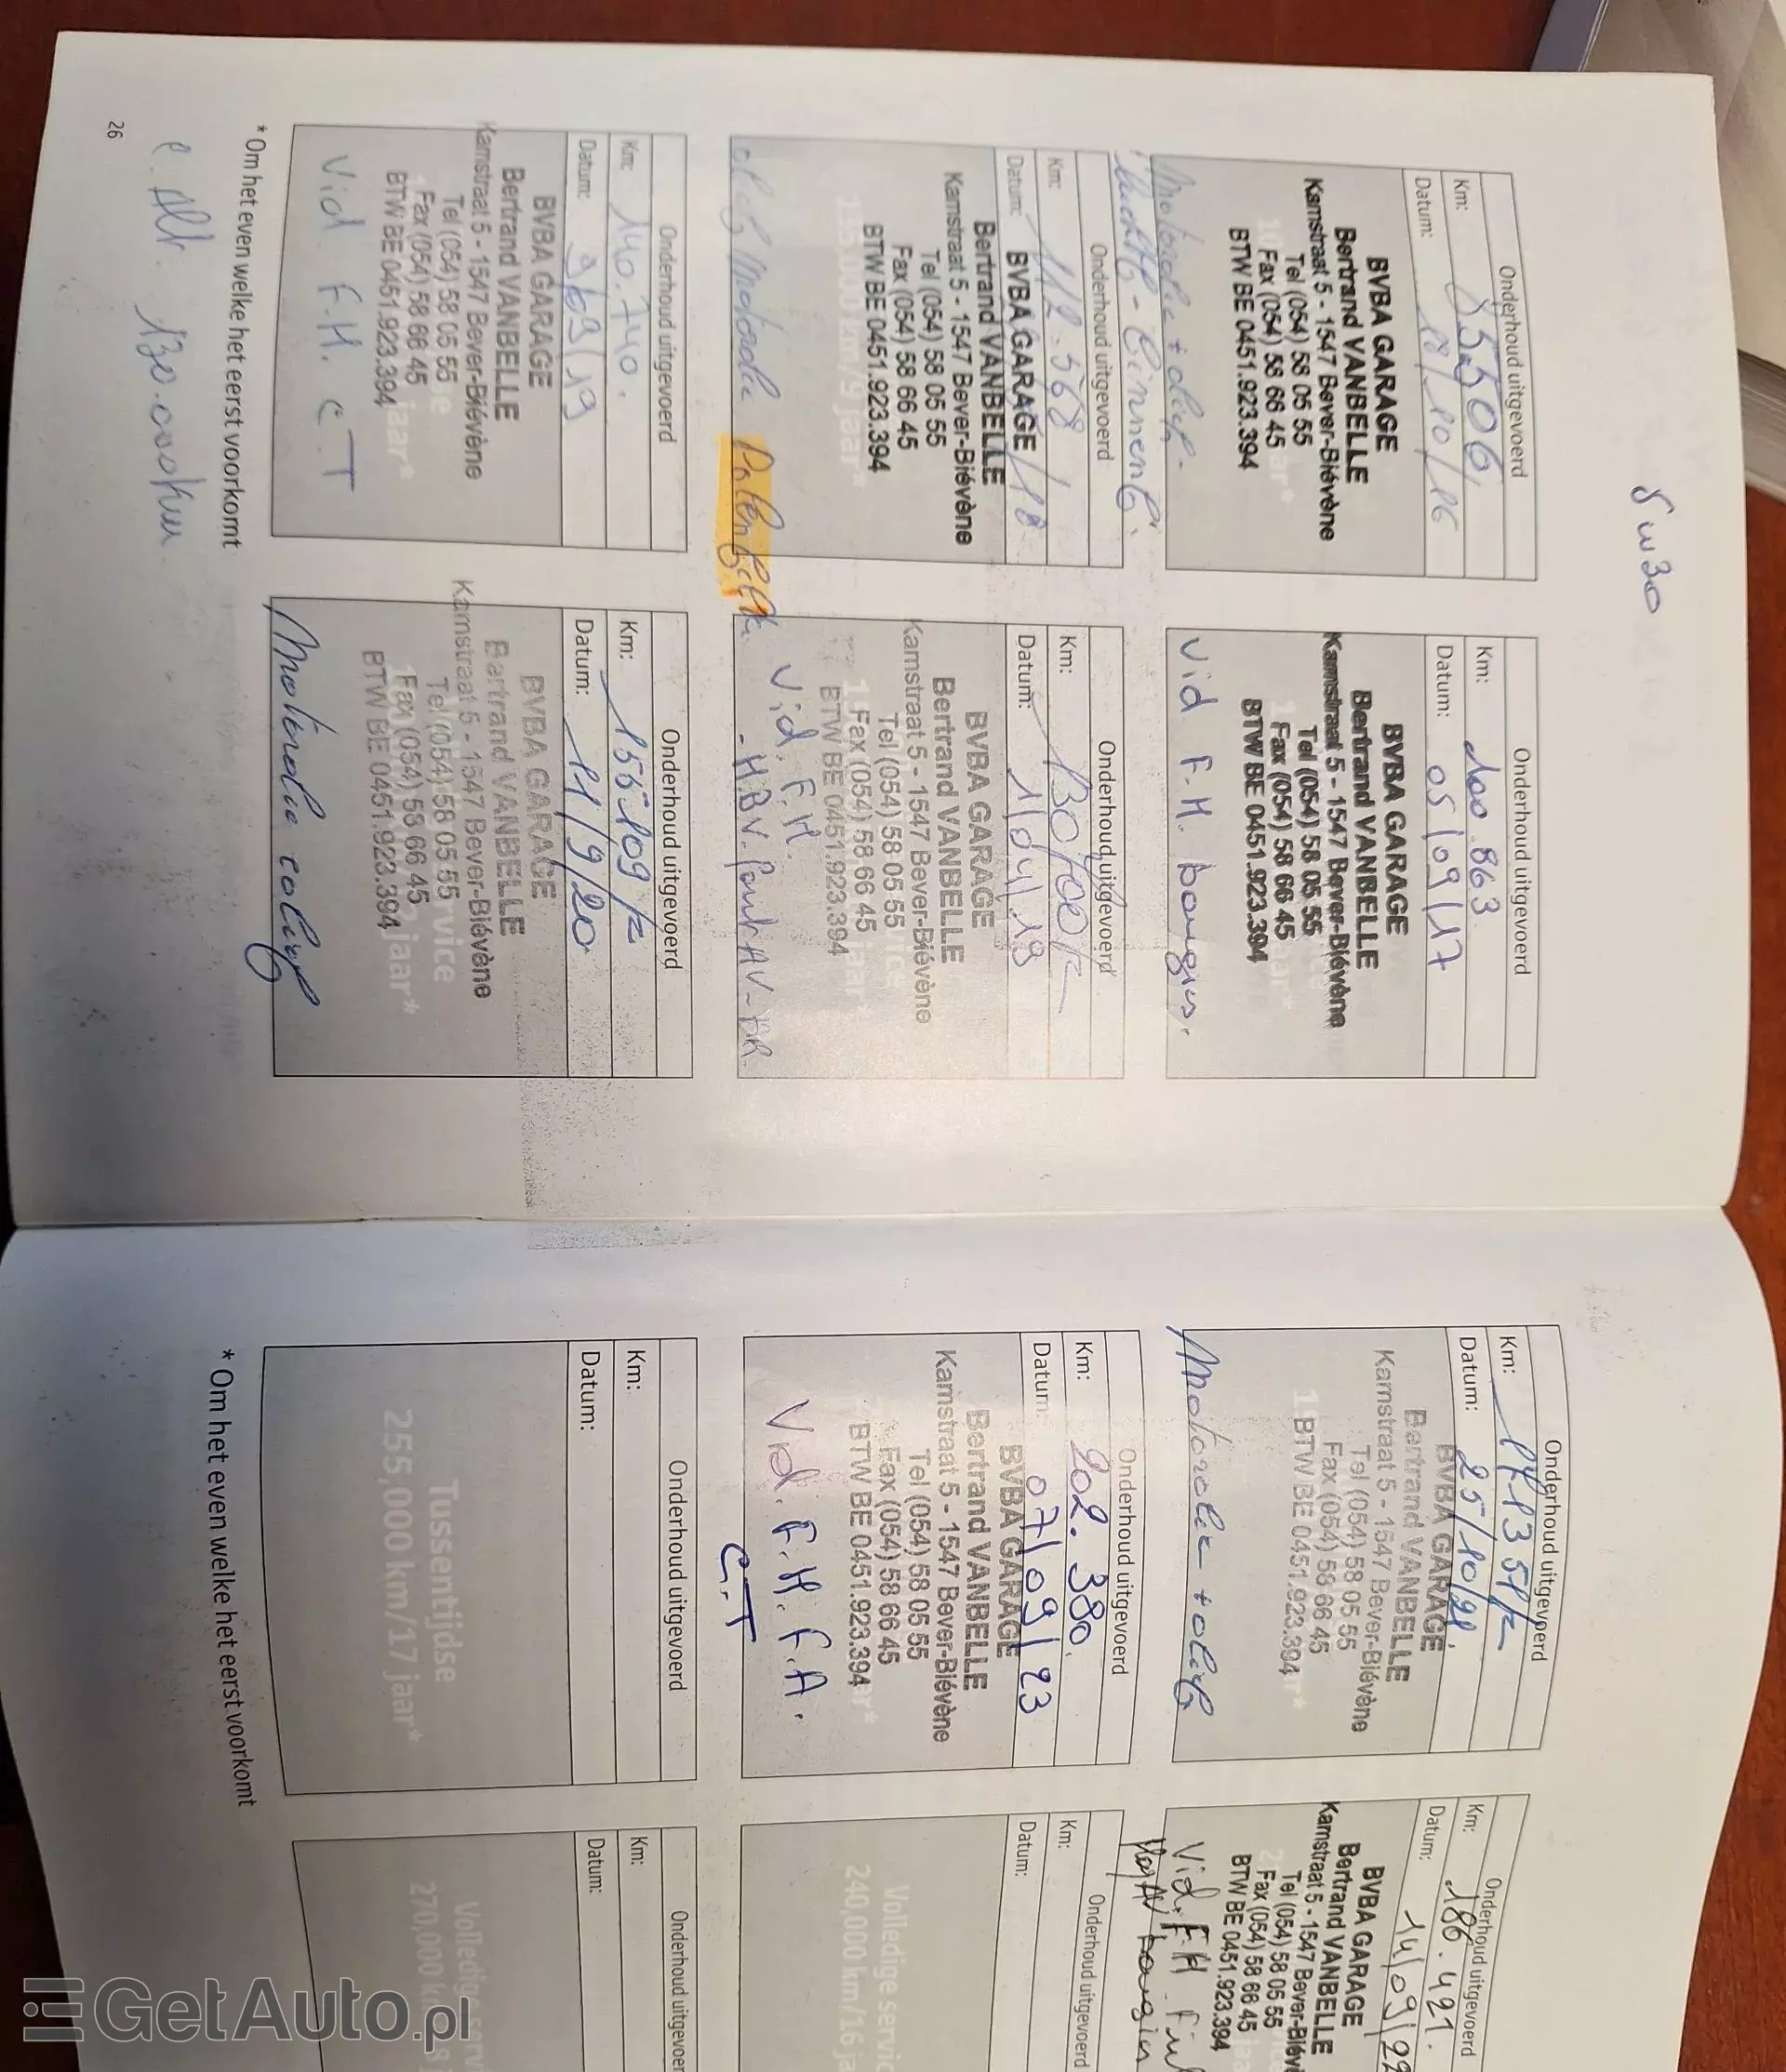 5w30
Onderhoud uitgevoerd
Km: 85506
Datum: 18/10/16
BVBA GARAGE
Bertrand VANBELLE
Kamstraat 5 - 1547 Bever-Biévène
Tel (054) 58 05 55
Fax (054) 58 66 45
BTW BE 0451.923.394
Onderhoud uitgevoerd
Km: 100.863
Datum: 05/09/17
BVBA GARAGE
Bertrand VANBELLE
Kamstraat 5 - 1547 Bever-Biévène
Tel (054) 58 05 55
Fax (054) 58 66 45
BTW BE 0451.923.394
Vid F.H. bougies.
Onderhoud uitgevoerd
Km: 112.568
Datum:
BVBA GARAGE
Bertrand VANBELLE
Kamstraat 5 - 1547 Bever-Biévène
Tel (054) 58 05 55
Fax (054) 58 66 45
BTW BE 0451.923.394
Onderhoud uitgevoerd
Km:
Datum: 1/04/19
BVBA GARAGE
Bertrand VANBELLE
Kamstraat 5 - 1547 Bever-Biévène
Tel (054) 58 05 55
Fax (054) 58 66 45
BTW BE 0451.923.394
Vid. F.H.
Onderhoud uitgevoerd
Km: 140.740.
Datum: 9/09/19
BVBA GARAGE
Bertrand VANBELLE
Kamstraat 5 - 1547 Bever-Biévène
Tel (054) 58 05 55
Fax (054) 58 66 45
BTW BE 0451.923.394
jaar*
Vid. F.H. CT
Onderhoud uitgevoerd
Km: 155109
Datum: 11/9/20
BVBA GARAGE
Bertrand VANBELLE
Kamstraat 5 - 1547 Bever-Biévène
Tel (054) 58 05 55
Fax (054) 58 66 45
BTW BE 0451.923.394
jaar*
Motorolie
* Om het even welke het eerst voorkomt
130.000km
26
Onderhoud uitgevoerd
Km:
Datum: 25/10/21
BVBA GARAGE
Bertrand VANBELLE
Kamstraat 5 - 1547 Bever-Biévène
Tel (054) 58 05 55
Fax (054) 58 66 45
BTW BE 0451.923.394
Motorolie
Onderhoud uitgevoerd
Km: 186.421.
Datum: 14/09/22
BVBA GARAGE
Bertrand VANBELLE
Kamstraat 5 - 1547 Bever-Biév
Tel (054) 58 05 55
Fax (054) 58 66 45
BTW BE 0451.923.394
Vid. F.H.
Onderhoud uitgevoerd
Km: 202.380.
Datum: 07/09/23
BVBA GARAGE
Bertrand VANBELLE
Kamstraat 5 - 1547 Bever-Biévène
Tel (054) 58 05 55
Fax (054) 58 66 45
BTW BE 0451.923.394
Vid. F.H. F.A.
C.T
Onderhoud uitgevoerd
Km:
Datum:
Volledige servic
240,000 km/16 ja
Onderhoud uitgevoerd
Km:
Datum:
Tussentijdse
255,000 km/17 jaar*
Onderhoud uitgevoer
Km:
Datum:
Volledige servi
270,000 k
* Om het even welke het eerst voorkomt
GetAuto.pl